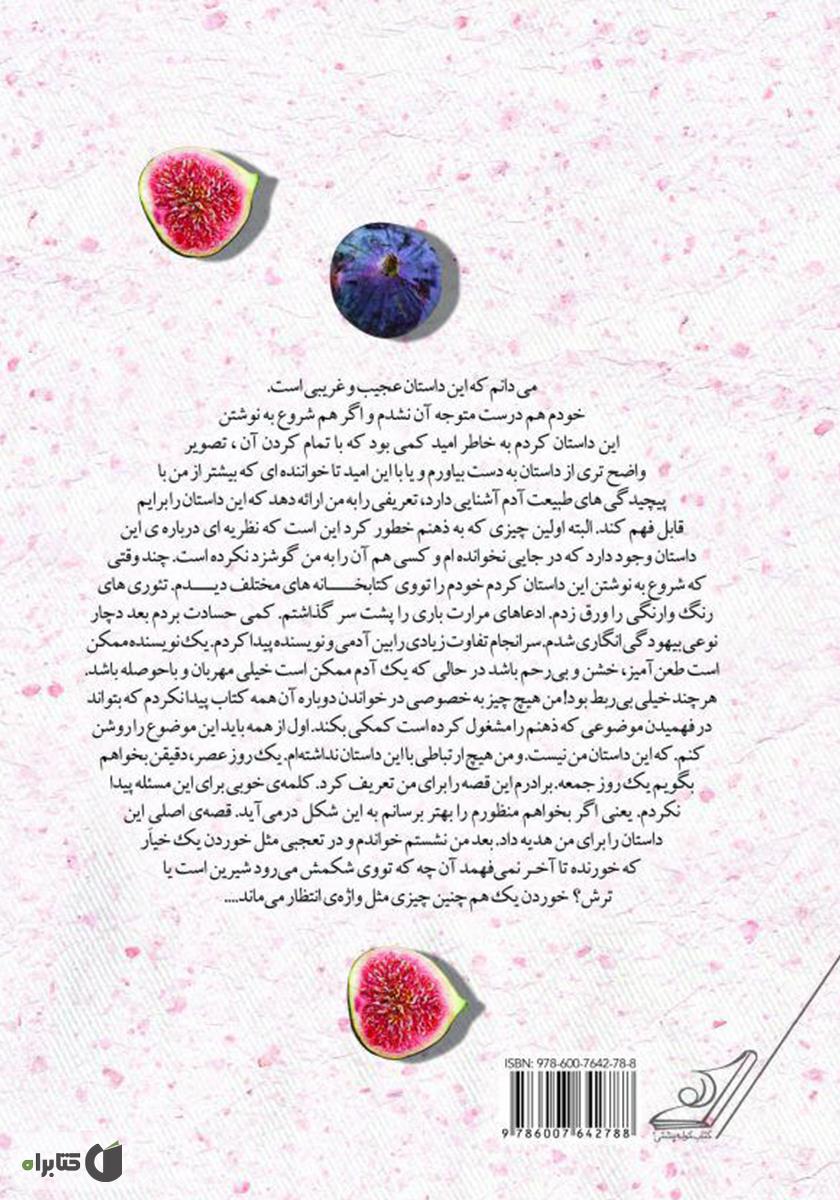 می دانم که این داستان عجیب و غریبی است.
خودم هم درست متوجه آن نشدم و اگر هم شروع به نوشتن
این داستان کردم به خاطر امید کمی بود که با تمام کردن آن ، تصویر
واضح تری از داستان به دست بیاورم و یا با این امید تا خواننده ای که بیشتر از من با
پیچیدگی های طبیعت آدم آشنایی دارد، تعریفی را به من ارائه دهد که این داستان را برایم
قابل فهم کند. البته اولین چیزی که به ذهنم خطور کرد این است که نظریه ای درباره ی این
داستان وجود دارد که در جایی نخوانده ام و کسی هم آن را به من گوشزد نکرده است. چند وقتی
که شروع به نوشتن این داستان کردم خودم را تووی کتابخـــانه های مختلف دیـــدم. تئوری های
رنگ وارنگی را ورق زدم. ادعاهای مرارت باری را پشت سر گذاشتم. کمی حسادت بردم بعد دچار
نوعی بیهودگی انگاری شدم. سرانجام تفاوت زیادی را بین آدمی و نویسنده پیدا کردم. یک نویسنده ممکن
است طعن آمیز، خشن و بی‌رحم باشد در حالی که یک آدم ممکن است خیلی مهربان و باحوصله باشد.
هر چند خیلی بی‌ربط بود! من هیچ چیز به خصوصی در خواندن دوباره آن همه کتاب پیدا نکردم که بتواند
در فهمیدن موضوعی که ذهنم را مشغول کرده است کمکی بکند. اول از همه باید این موضوع را روشن
کنم. که این داستان من نیست. و من هیچ ارتباطی با این داستان نداشته‌ام. یک روز عصر، دقیقن بخواهم
بگویم یک روز جمعه. برادرم این قصه را برای من تعریف کرد. کلمه‌ی خوبی برای این مسئله پیدا
نکردم. یعنی اگر بخواهم منظورم را بهتر برسانم به این شکل درمی‌آید. قصه‌ی اصلی این
داستان را برای من هدیه داد. بعد من نشستم خواندم و در تعجبی مثل خوردن یک خیاَر
که خورنده تا آخـر نمی‌فهمد آن چه که تووی شکمش می‌رود شیرین است یا
ترش؟ خوردن یک هم چنین چیزی مثل واژه‌ی انتظار می‌ماند....
ISBN: 978-600-7642-78-8
9 786007 642788
کتاب کوله پشتی
کتابراه